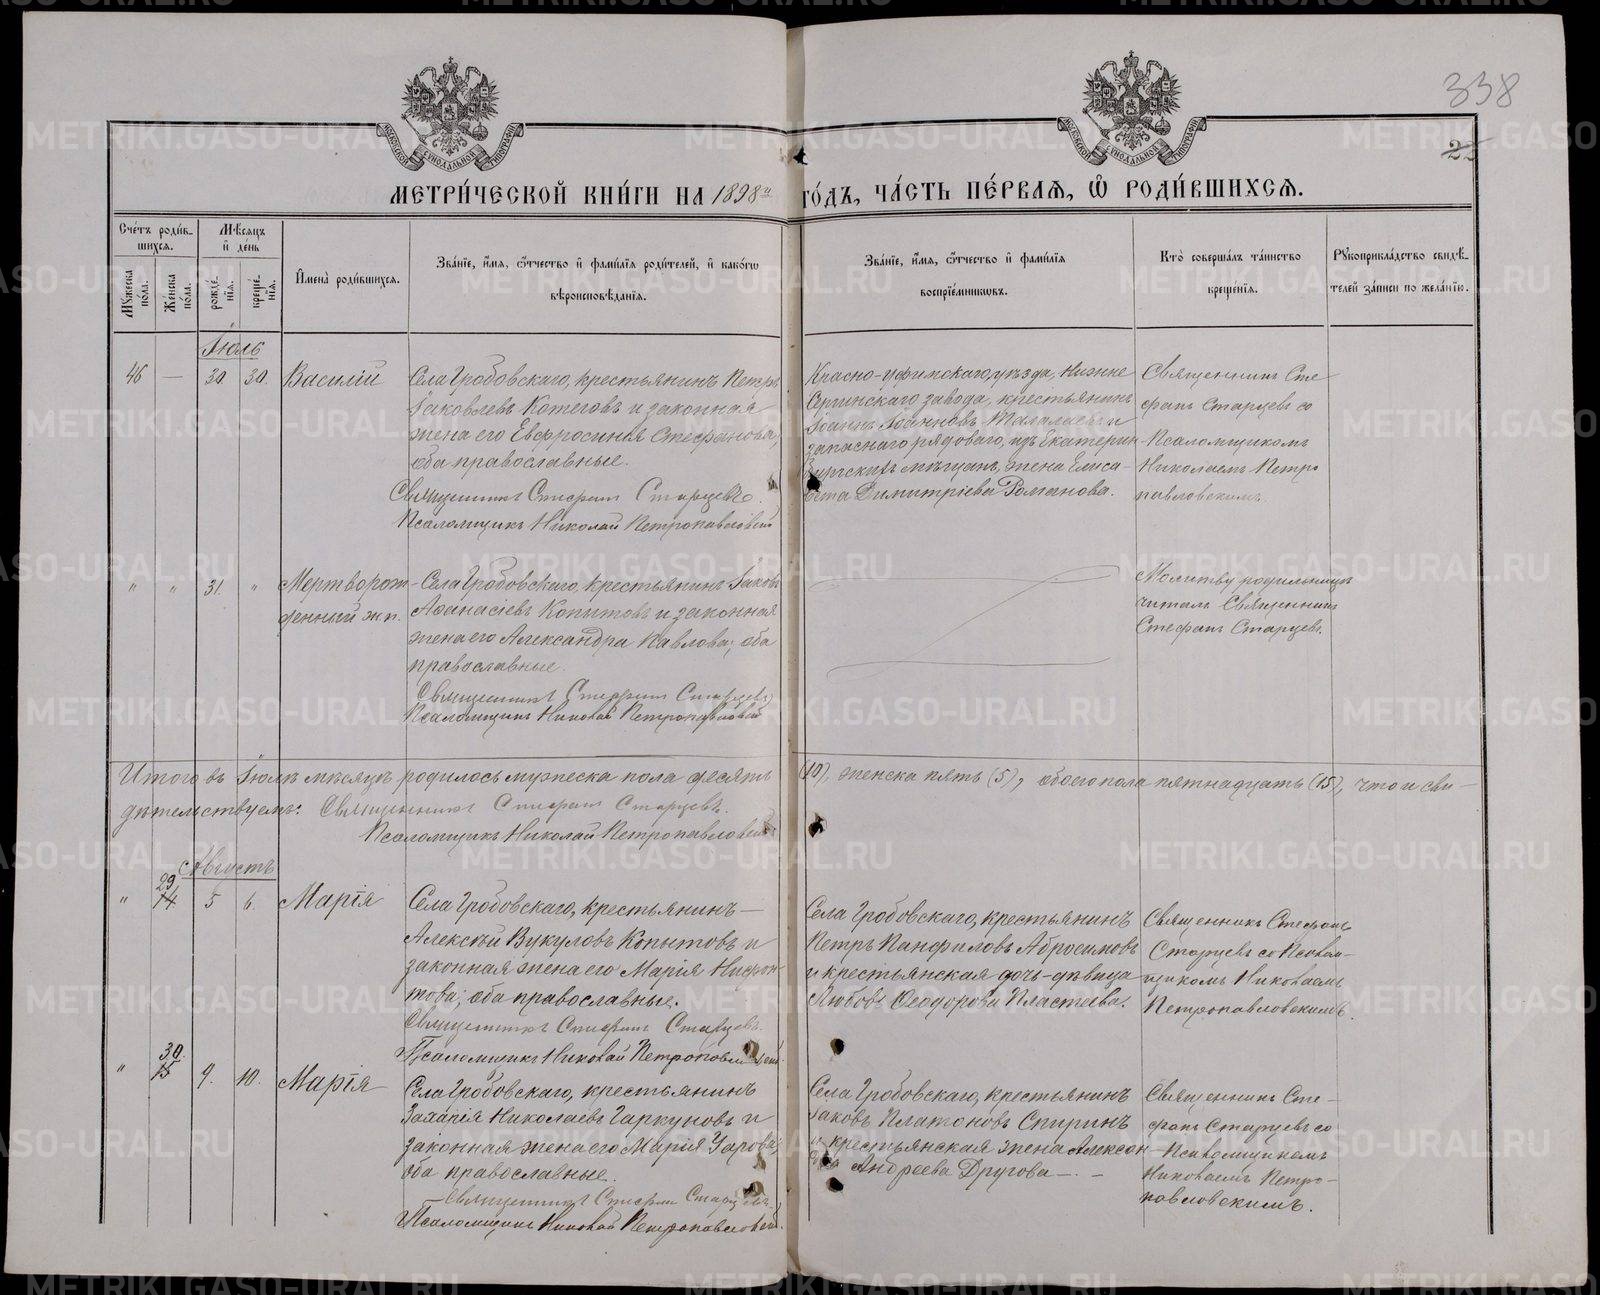 338
22
МЕТРИ́ЧЕСКОЙ КНИ́ГИ НА 1898й ГО́ДЪ, ЧА́СТЬ ПЕ́РВАЯ, Ѽ РОДИ́ВШИХСЯ.
Сче́тъ роди́вшихся.
Му́жеска по́ла.
Же́нска по́ла.
Мѣ́сяцъ и де́нь
рожде́нїя.
креще́нїя.
Имена̀ роди́вшихся.
Зва́нїе, и́мя, ѻ́тчество и фами́лїя роди́телей, и како́гѡ
вѣроисповѣ́данїя.
Зва́нїе, и́мя, ѻ́тчество и фами́лїя
воспрїе́мникѡвъ.
Кто̀ соверша́лъ та́инство
креще́нїя.
Рꙋкоприкла́дство свидѣ́-
телей за́писи по жела́нїю.
Іюль
46 — 30 30. Василій
Села Гробовскаго, крестьянинъ Петръ
Іаковлевъ Котеговъ и законная
жена его Евфросинія Стефанова,
оба православные.
Священникъ Стефанъ Старцевъ.
Псаломщикъ Николай Петропавловскій
Красно-уфимскаго уѣзда, Нижне
Сергинскаго завода, крестьянинъ
Іоаннъ Іоанновъ Талалаевъ и
запаснаго рядоваго, изъ Екатерин-
бургскихъ мѣщанъ, жена Елиса-
вета Димитріева Романова.
Священникъ Сте-
фанъ Старцевъ со
Псаломщикомъ
Николаемъ Петро
павловскимъ.
" " 31. " Мертворож-
денный ж.п.
Села Гробовскаго, крестьянинъ Іаковъ
Аѳанасіевъ Копытовъ и законная
жена его Александра Павлова; оба
православные.
Священникъ Стефанъ Старцевъ
Псаломщикъ Николай Петропавловскій
Молитву родильницѣ
читалъ Священникъ
Стефанъ Старцевъ.
Итого въ Іюлѣ мѣсяцѣ родилось мужеска пола десять (10), женска пять (5), обоего пола пятнадцать (15), что и сви-
дѣтельствуемъ: Священникъ Стефанъ Старцевъ.
Псаломщикъ Николай Петропавловскій
Августъ
29
" 14 5 6. Марія
Села Гробовскаго, крестьянинъ —
Алексѣй Вукуловъ Копытовъ и
законная жена его Марія Нифон-
това; оба православные.
Священникъ Стефанъ Старцевъ.
Псаломщикъ Николай Петропавловскій.
Села Гробовскаго, крестьянинъ
Петръ Панфиловъ Абросимовъ
и крестьянская дочь-дѣвица
Любовь Ѳеодорова Пластеева.
Священникъ Стефанъ
Старцевъ со Псалом-
щикомъ Николаемъ
Петропавловскимъ.
30.
" 15 9. 10. Марія
Села Гробовскаго, крестьянинъ
Захарія Николаевъ Гаркуновъ и
законная жена его Марія Уарова;
оба православные.
Священникъ Стефанъ Старцевъ
Псаломщикъ Николай Петропавловскій.
Села Гробовскаго, крестьянинъ
Іаковъ Платоновъ Спиринъ
и крестьянская жена Алексан-
дра Андреева Другова —. —
Священникъ Сте-
фанъ Старцевъ со
Псаломщикомъ
Николаемъ Петро-
павловскимъ.
METRIKI.GASO-URAL.RU